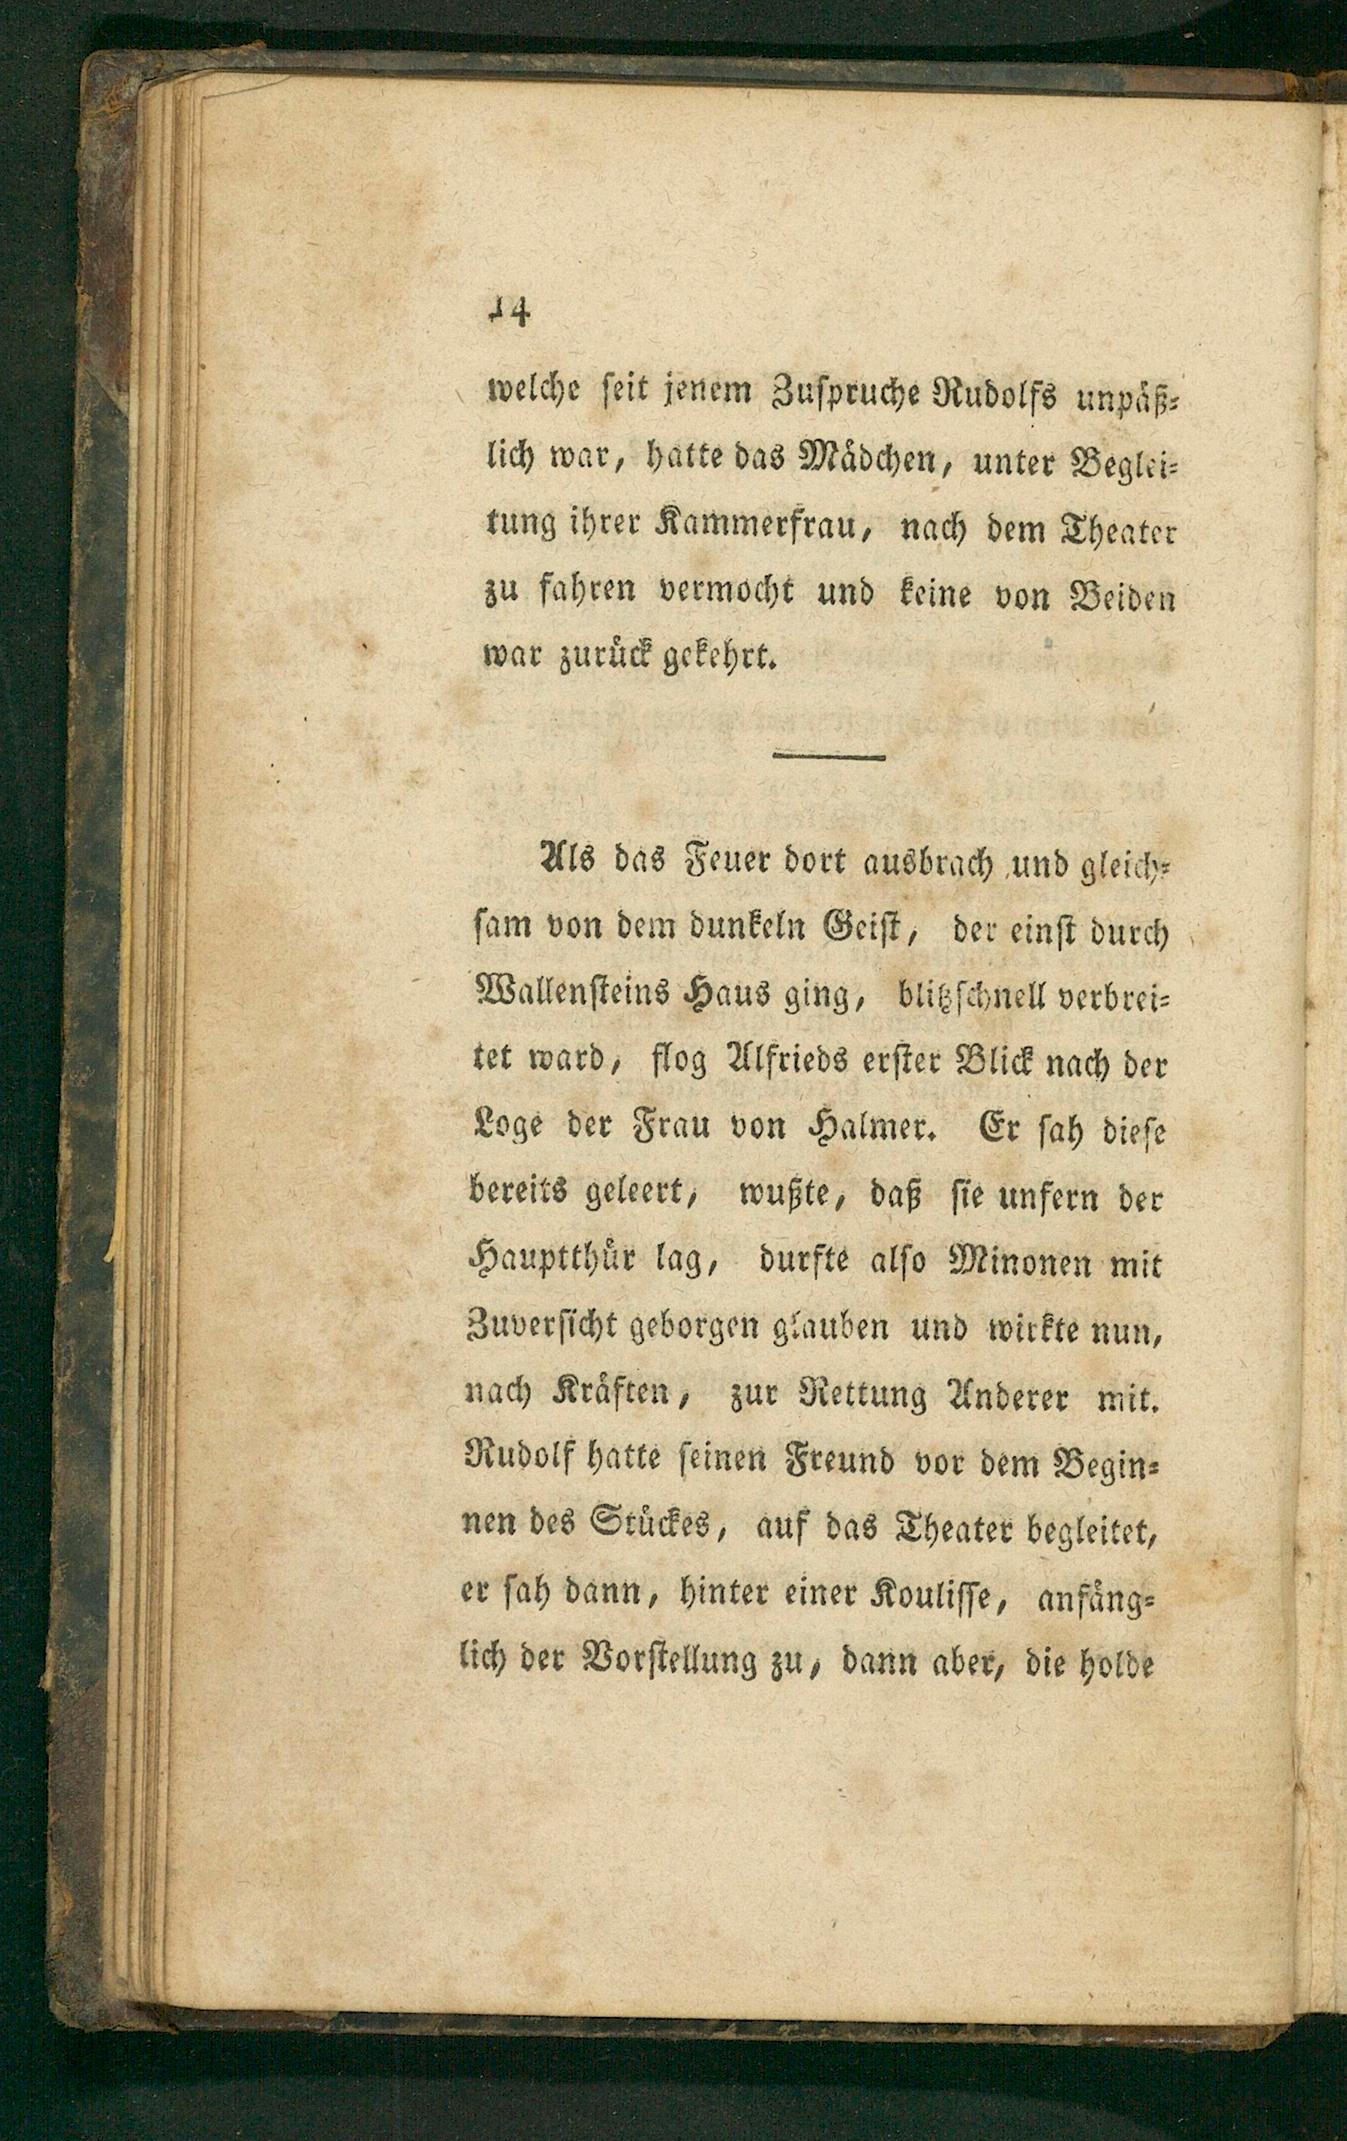 14
welche seit jenem Zuspruche Rudolfs unpäß-
lich war, hatte das Mädchen, unter Beglei-
tung ihrer Kammerfrau, nach dem Theater
zu fahren vermocht und keine von Beiden
war zurück gekehrt.
Als das Feuer dort ausbrach und gleich-
sam von dem dunkeln Geist, der einst durch
Wallensteins Haus ging, blitzschnell verbrei-
tet ward, flog Alfrieds erster Blick nach der
Loge der Frau von Halmer. Er sah diese
bereits geleert, wußte, daß sie unfern der
Hauptthür lag, durfte also Minonen mit
Zuversicht geborgen glauben und wirkte nun,
nach Kräften, zur Rettung Anderer mit.
Rudolf hatte seinen Freund vor dem Begin-
nen des Stückes, auf das Theater begleitet,
er sah dann, hinter einer Koulisse, anfäng-
lich der Vorstellung zu, dann aber, die holde